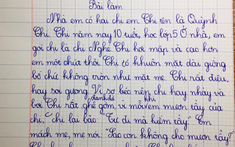 Bài làm
Nhà em có hai chị em. Chị tên là Quỳnh
Chi. Chị năm nay 10 tuổi học lớp 5. Ở nhà, em
gọi chị là chị Nghé. Chị hơi mập và cao hơn
em một chút thôi. Chị có khuôn mặt dài giống
bố chứ không tròn như mặt mẹ. Chị rất điệu,
hay soi gương. Vì sợ béo nên chị hay nhảy và
bơi. Chị rất ghét gom vì em mượn tẩy của
chị, chị lại bảo "Tự đi mà kiếm tẩy". Em
mách mẹ, mẹ nói "Sao con không cho mượn tẩy?"